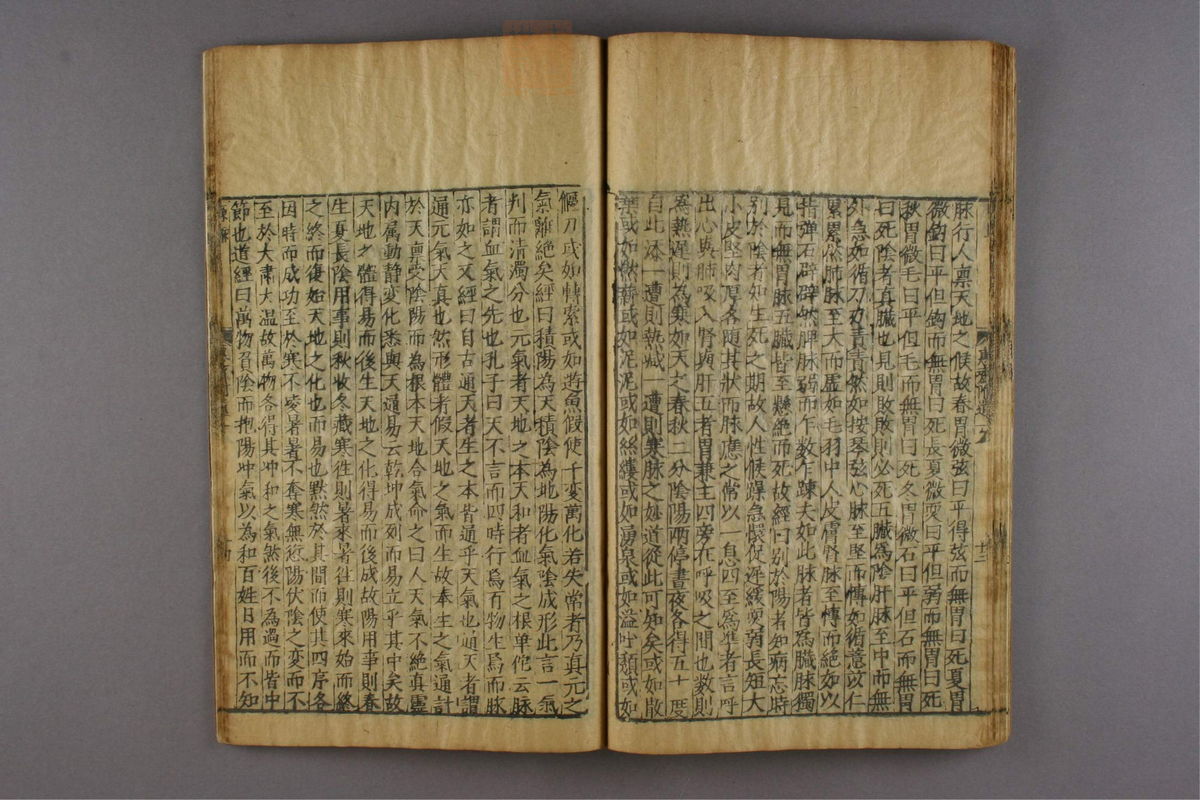 脉行人禀天地之候故春胃微弦曰平得弦而無胃曰死夏胃
微鈎曰平但鈎而無胃曰死長夏微耎曰平但弱而無胃曰死
秋胃微毛曰平但毛而無胃曰死冬胃微石曰平但石而無胃
曰死陰者真臟也見則敗敗則必死五臟為陰肝脉至中而無
外急如循刀刃責責然如按琴弦心脉至堅而慱如循薏苡仁
累累然肺脉至大而虛如毛羽中人皮膚腎脉至慱而絕如以
指彈石辟辟然脾脉弱而乍数乍踈夫如此脉者皆為臟脉獨
見而無胃脉五臟皆至懸絕而死故經曰别於陽者知病忌時
别於陰者知生死之期故人性候躁急䐜促遲緩耎弱長短大
小皮堅肉厚各随其狀而脉應之常以一息四至為準者言呼
出心與肺吸入腎與肝五者胃兼主四旁在呼吸之間也数則
為熱遲則為寒如天之春秋二分陰陽兩停晝夜各得五十度
自此添一遭則熱减一遭則寒脉之妙道從此可知矣或如散
葉或如燃薪或如泥泥或如絲縷或如湧泉或如溢吐頹或如
偃刀或如轉索或如遊魚假使千變萬化若失常者乃真元之
氣離絕矣經曰積陽為天積陰為地陽化氣陰成形此言一氣
判而清濁分也元氣者天地之本天和者血氣之根華佗云脉
者謂血氣之先也孔子曰天不言而四時行焉百物生焉而脉
亦如之又經曰自古通天者生之本皆通乎天氣也通天者謂
通元氣天真也然形體者假天地之氣而生故奉生之氣通計
於天禀受陰陽而為根本天地合氣命之曰人天氣不絕真靈
内属動静変化悉與天通易云乾坤成列而易立乎其中矣故
天地之體得易而後生天地之化得易而後成故陽用事則春
生夏長陰用事則秋收冬藏寒徃則暑來暑徃則寒來始而終
之終而復始天地之化也而易也黙然於其間而使其四序各
因時而成功至於寒不凌暑暑不奪寒無愆陽伏陰之变而不
至於大肅大温故萬物各得其冲和之氣然後不為過而皆中
節也道經曰萬物負陰而抱陽冲氣以為和百姓日用而不知